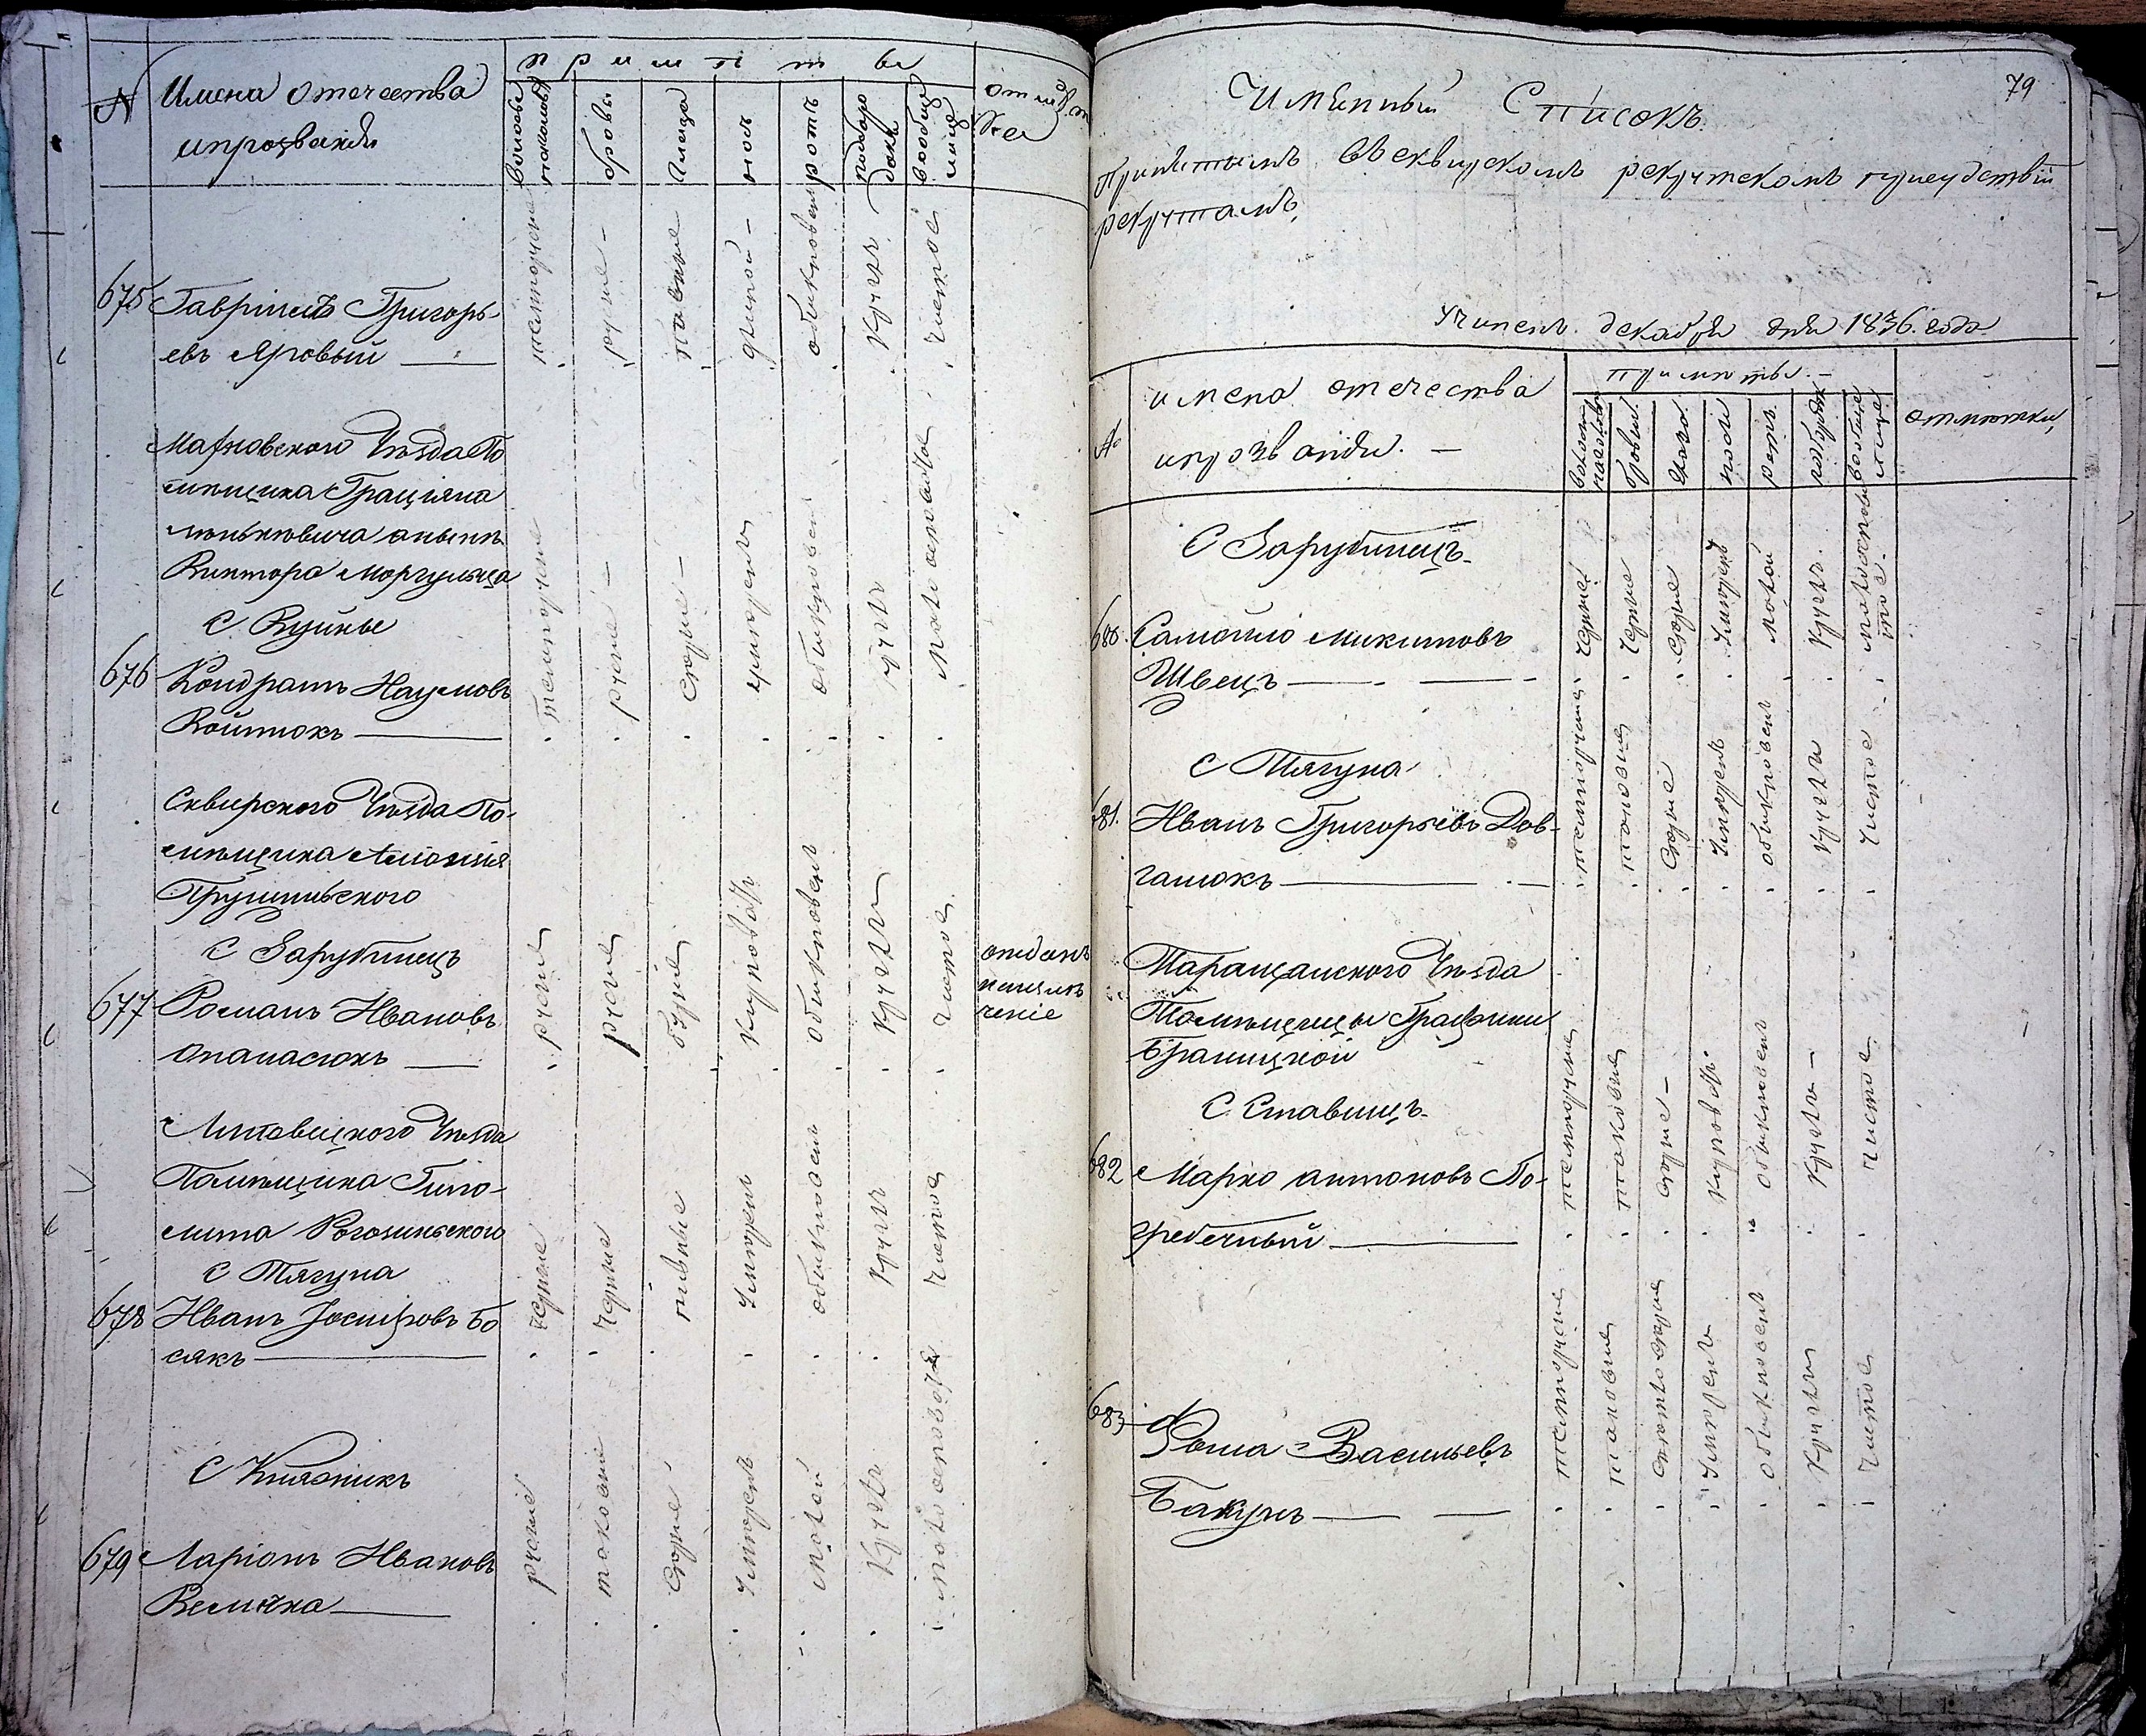 №
Имена отечества
ипрозванія
примѣты
волосы
наголовѣ
бровы
глаза
носъ
ротъ
подборо
докъ
вообще
лице
675 Гавріилъ Григорь-
евъ Яровый
темнорусые
русые
длиной
обыкновенъ
круглъ
чистое
Махновского Уѣзда По
мѣщика Граціяна
Виктора
С Вуйнье
676 Кондратъ Наумовъ
Войтюкъ
темнорусые
русые
серые
умѣренъ
обыкновенъ
круглъ
Сквирского Уѣзда По-
мѣщика Антонія
С Зарубинецъ
677 Романъ Ивановъ
Опанасюкъ
русые
русые
курноватъ
обыкновенъ
круглъ
чистое
отданъ
Липовецкого Уѣзда
Помѣщика Гипо-
лита Рогозинского
С Тягуна
678 Иванъ Іосифовъ Бо
сякъ
черные
черные
умѣренъ
обыкновенъ
круглъ
чистое
С Княжикъ
679 Ларіонъ Ивановъ
Величка
русые
таковые
серые
умѣренъ
малой
круглъ
79
Имѣнный Списокъ
принятымъ Всквирскомъ рекрутскомъ присудствіи
рекрутамъ,
Учиненъ декабря дня 1836. года
№
имена отечества
ипрозванія.
примѣты.
волосы
наголовѣ
бровы
глаза
носъ
ротъ
подбородокъ
вообще
лице
отмѣтки
С Зарубинецъ
680. Самойло Микитовъ
Швецъ
черные
черные
серые
умѣренъ
малой
круглъ.
С Тягуна
681. Иванъ Григорьевъ Дов-
галюкъ
темнорусые
таковые
серые
умѣренъ
обыкновенъ
круглъ
чистое
Таращанского Уѣзда
Помѣщицы Графини
Браницкой
С. Ставищъ
682 Марко антоновъ По-
гребечный
темнорусые
таковые
серые
курноватъ
обыкновенъ
круглъ
чистое
683 Фома Васильевъ
Бакунъ
темнорусые
таковые
светлосерые
умѣренъ
обыкновенъ
круглъ
чистое